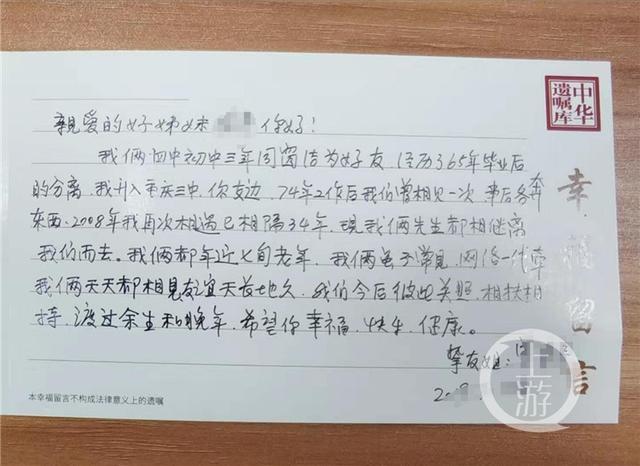 中华
遗嘱库
幸福留言
親爱的好姊妹 你好!
我俩四中初中三年同窗结为好友,经历365年毕业后
的分离,我升入重庆三中,你支边,74年工作后我们曾相见一次,事后各奔
东西,2008年我再次相遇已相隔34年,现我俩先生都相继离
我们而去。我俩都年近七旬老年,我俩虽不常見,网络一代牵
我俩天天都相見友宜天长地久,我们今后彼此关照,相扶相
持,渡过余生和晚年,希望你幸福、快乐、健康。
挚友姐:
本幸福留言不构成法律意义上的遗嘱
上游